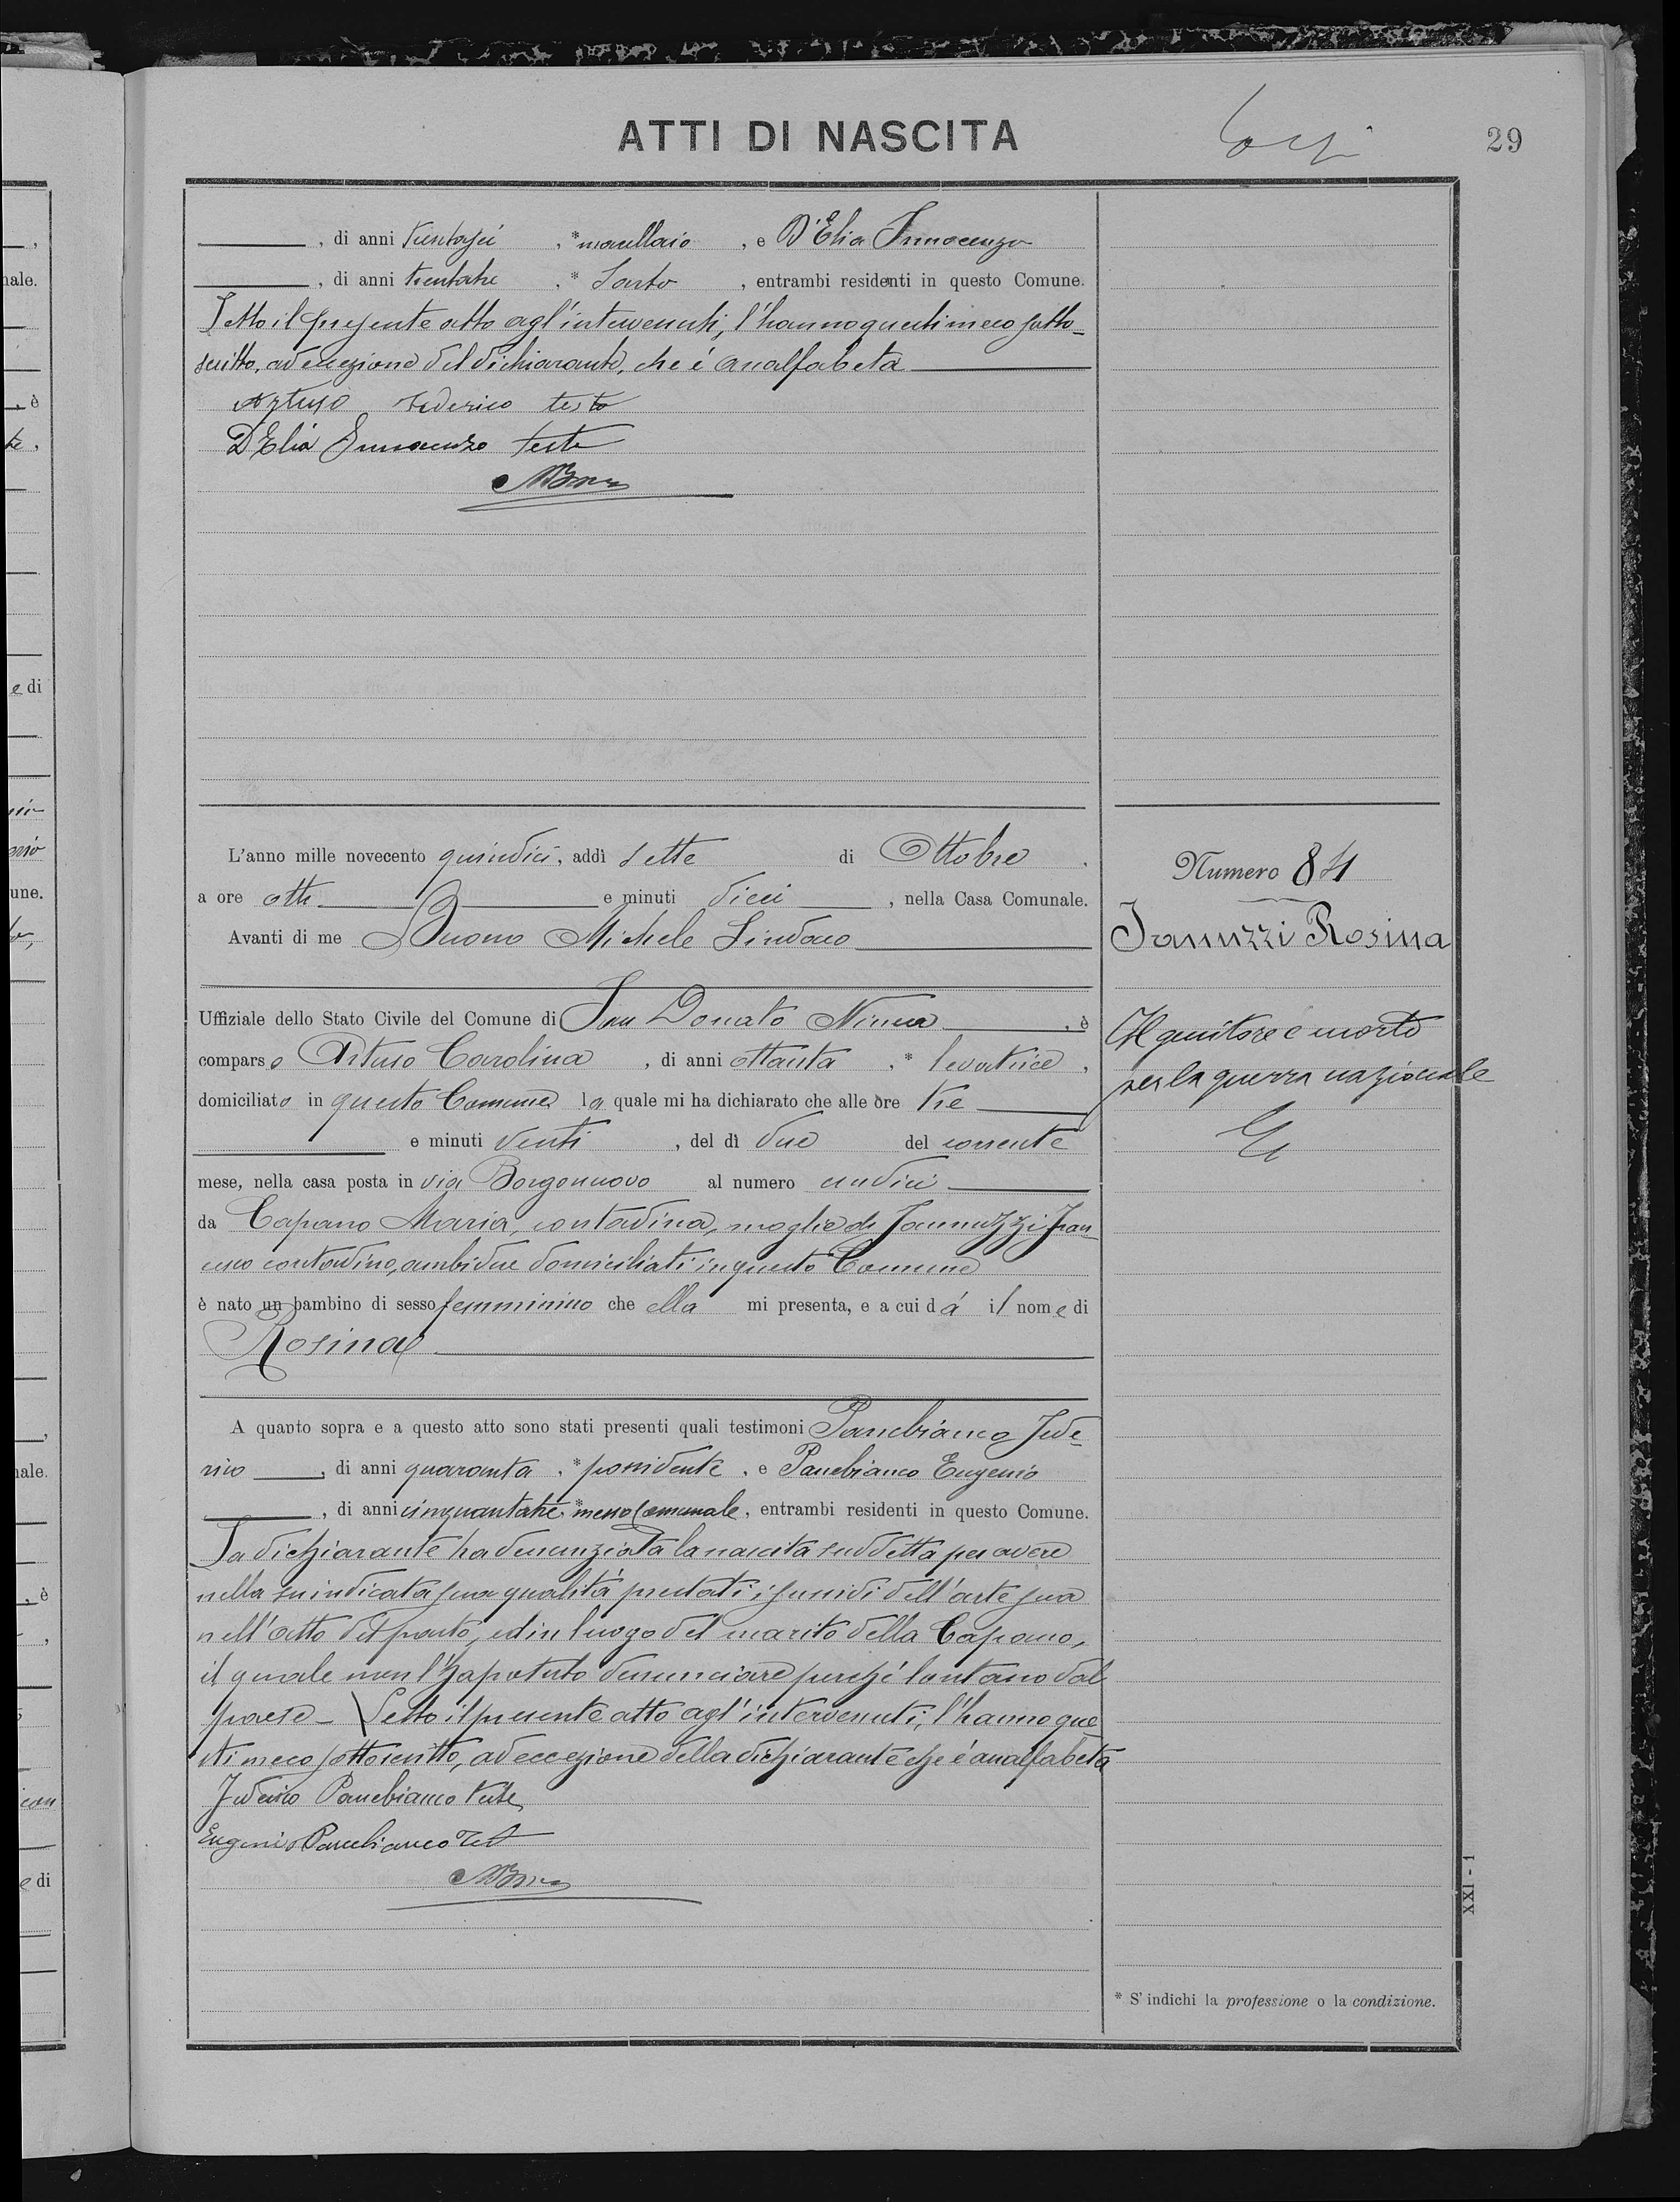 ATTI DI NASCITA
29
, di anni trentasei, * macellaio, e D'Elia Innocenzo
, di anni trentatre, * Sarto, entrambi residenti in questo Comune.
Letto il presente atto agl'intervenuti, l'hanno questi meco sotto-
scritto, ad eccezione del dichiarante, che è analfabeta
Artuso Federico teste
D'Elia Innocenzo teste
MBuono
L'anno mille novecento quindici, addì sette di Ottobre,
a ore otto e minuti dieci, nella Casa Comunale.
Avanti di me Buono Michele Sindaco
Uffiziale dello Stato Civile del Comune di San Donato Ninea, è
comparso Artuso Carolina, di anni ottanta, * levatrice,
domiciliato in questo Comune la quale mi ha dichiarato che alle ore tre
e minuti venti, del dì due del corrente
mese, nella casa posta in via Borgonuovo al numero undici
da Capano Maria, contadina, moglie di Iannuzzi Fran-
cesco contadino, ambidue domiciliati in questo Comune
è nato un bambino di sesso femminino che ella mi presenta, e a cui dá il nome di
Rosina
A quanto sopra e a questo atto sono stati presenti quali testimoni Panebianco Fede-
rico, di anni quaranta, * possidente, e Panebianco Eugenio
, di anni cinquantatre, * messo Comunale, entrambi residenti in questo Comune.
La dichiarante ha denunziata la nascita suddetta per avere
nella suindicata sua qualità prestati i sussidi dell'arte sua
nell'atto del parto, ed in luogo del marito della Capano,
il quale non l'ha potuto denunciare perché lontano dal
paese - Letto il presente atto agl'intervenuti, l'hanno que
sti meco sottoscritto, ad eccezione della dichiarante che è analfabeta
Federico Panebianco teste
Eugenio Panebianco Test
MBuono
Numero 84
Iannuzzi Rosina
Il genitore è morto
per la guerra nazionale
* S'indichi la professione o la condizione.
XXI - 1